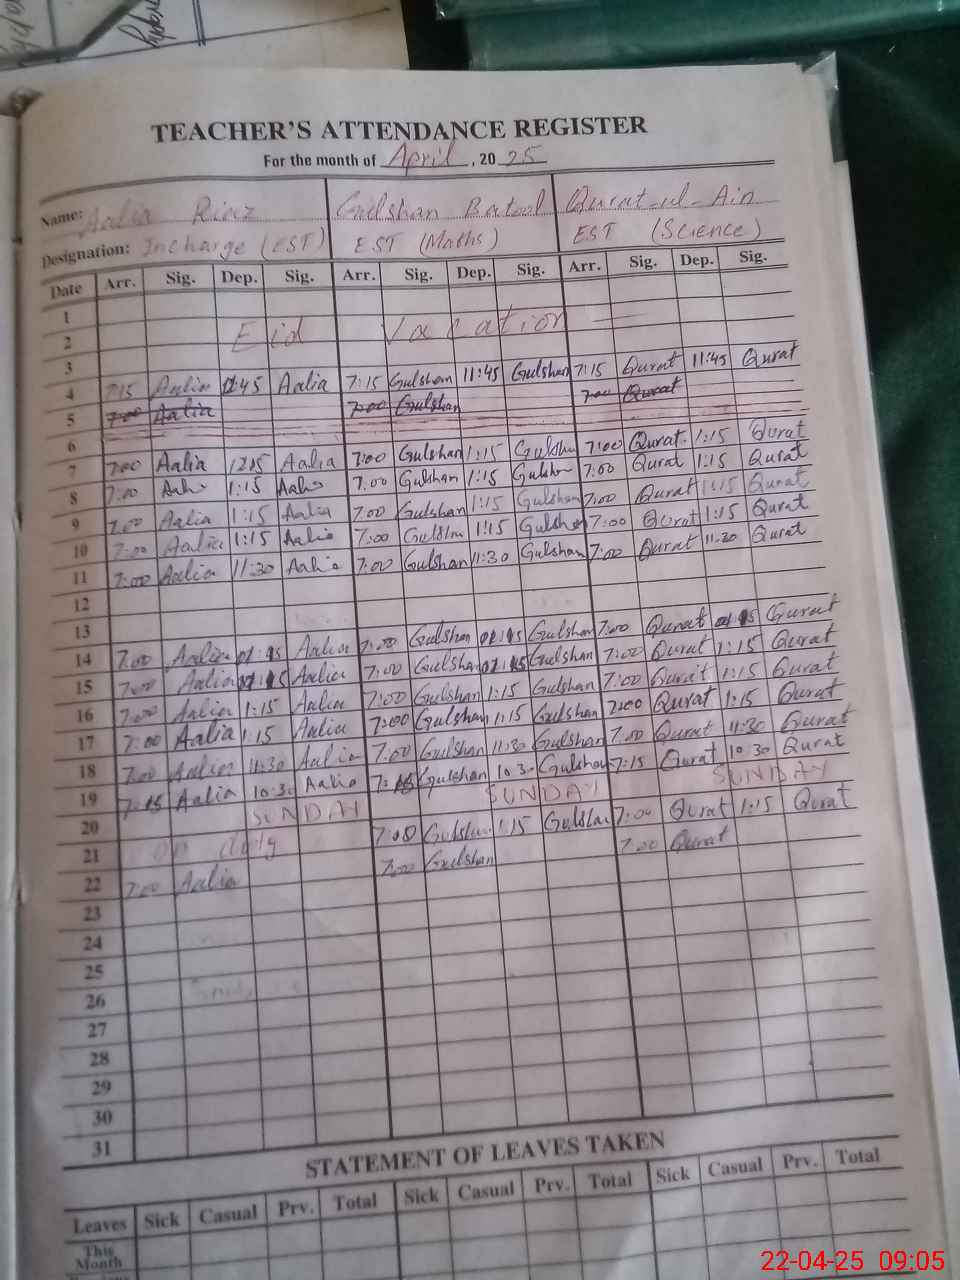 TEACHER'S ATTENDANCE REGISTER
For the month of April, 20 25
Name: Aalia Riaz Gulshan Batool Qurat-ul-Ain
Designation: Incharge (EST) EST (Maths) EST (Science)
Date Arr. Sig. Dep. Sig. Arr. Sig. Dep. Sig. Arr. Sig. Dep. Sig.
1
2 Eid Vacation
3
4 7:15 Aalia 11:45 Aalia 7:15 Gulshan 11:45 Gulshan 7:15 Qurat 11:45 Qurat
5 7:00 Aalia 7:00 Gulshan 7:00 Qurat
6
7 7:00 Aalia Aalia 7:00 Gulshan 1:15 Gulshan 7:00 Qurat 1:15 Qurat
8 7:00 Aalia 1:15 Aalia 7:00 Gulshan 1:15 Gulshan 7:00 Qurat 1:15 Qurat
9 7:00 Aalia 1:15 Aalia 7:00 Gulshan 1:15 Gulshan 7:00 Qurat 1:15 Qurat
10 7:00 Aalia 1:15 Aalia 7:00 Gulshan 1:15 Gulshan 7:00 Qurat 1:15 Qurat
11 7:00 Aalia 11:30 Aalia 7:00 Gulshan 11:30 Gulshan 7:00 Qurat 11:30 Qurat
12
13
14 7:00 Aalia 01:15 Aalia 7:00 Gulshan 01:15 Gulshan 7:00 Qurat 01:15 Qurat
15 7:00 Aalia 01:15 Aalia 7:00 Gulshan 01:15 Gulshan 7:00 Qurat 1:15 Qurat
16 7:00 Aalia 1:15 Aalia 7:00 Gulshan 1:15 Gulshan 7:00 Qurat 1:15 Qurat
17 7:00 Aalia 1:15 Aalia 7:00 Gulshan 1:15 Gulshan 7:00 Qurat 1:15 Qurat
18 7:00 Aalia 11:30 Aalia 7:00 Gulshan 11:30 Gulshan 7:00 Qurat 11:30 Qurat
19 7:15 Aalia 10:30 Aalia 7:15 Gulshan 10:30 Gulshan 7:15 Qurat 10:30 Qurat
20 SUNDAY SUNDAY SUNDAY
21 on duty 7:00 Gulshan 1:15 Gulshan 7:00 Qurat 1:15 Qurat
22 7:00 Aalia 7:00 Gulshan 7:00 Qurat
23
24
25
26
27
28
29
30
31
STATEMENT OF LEAVES TAKEN
Leaves Sick Casual Prv. Total Sick Casual Prv. Total Sick Casual Prv. Total
This
Month
22-04-25 09:05